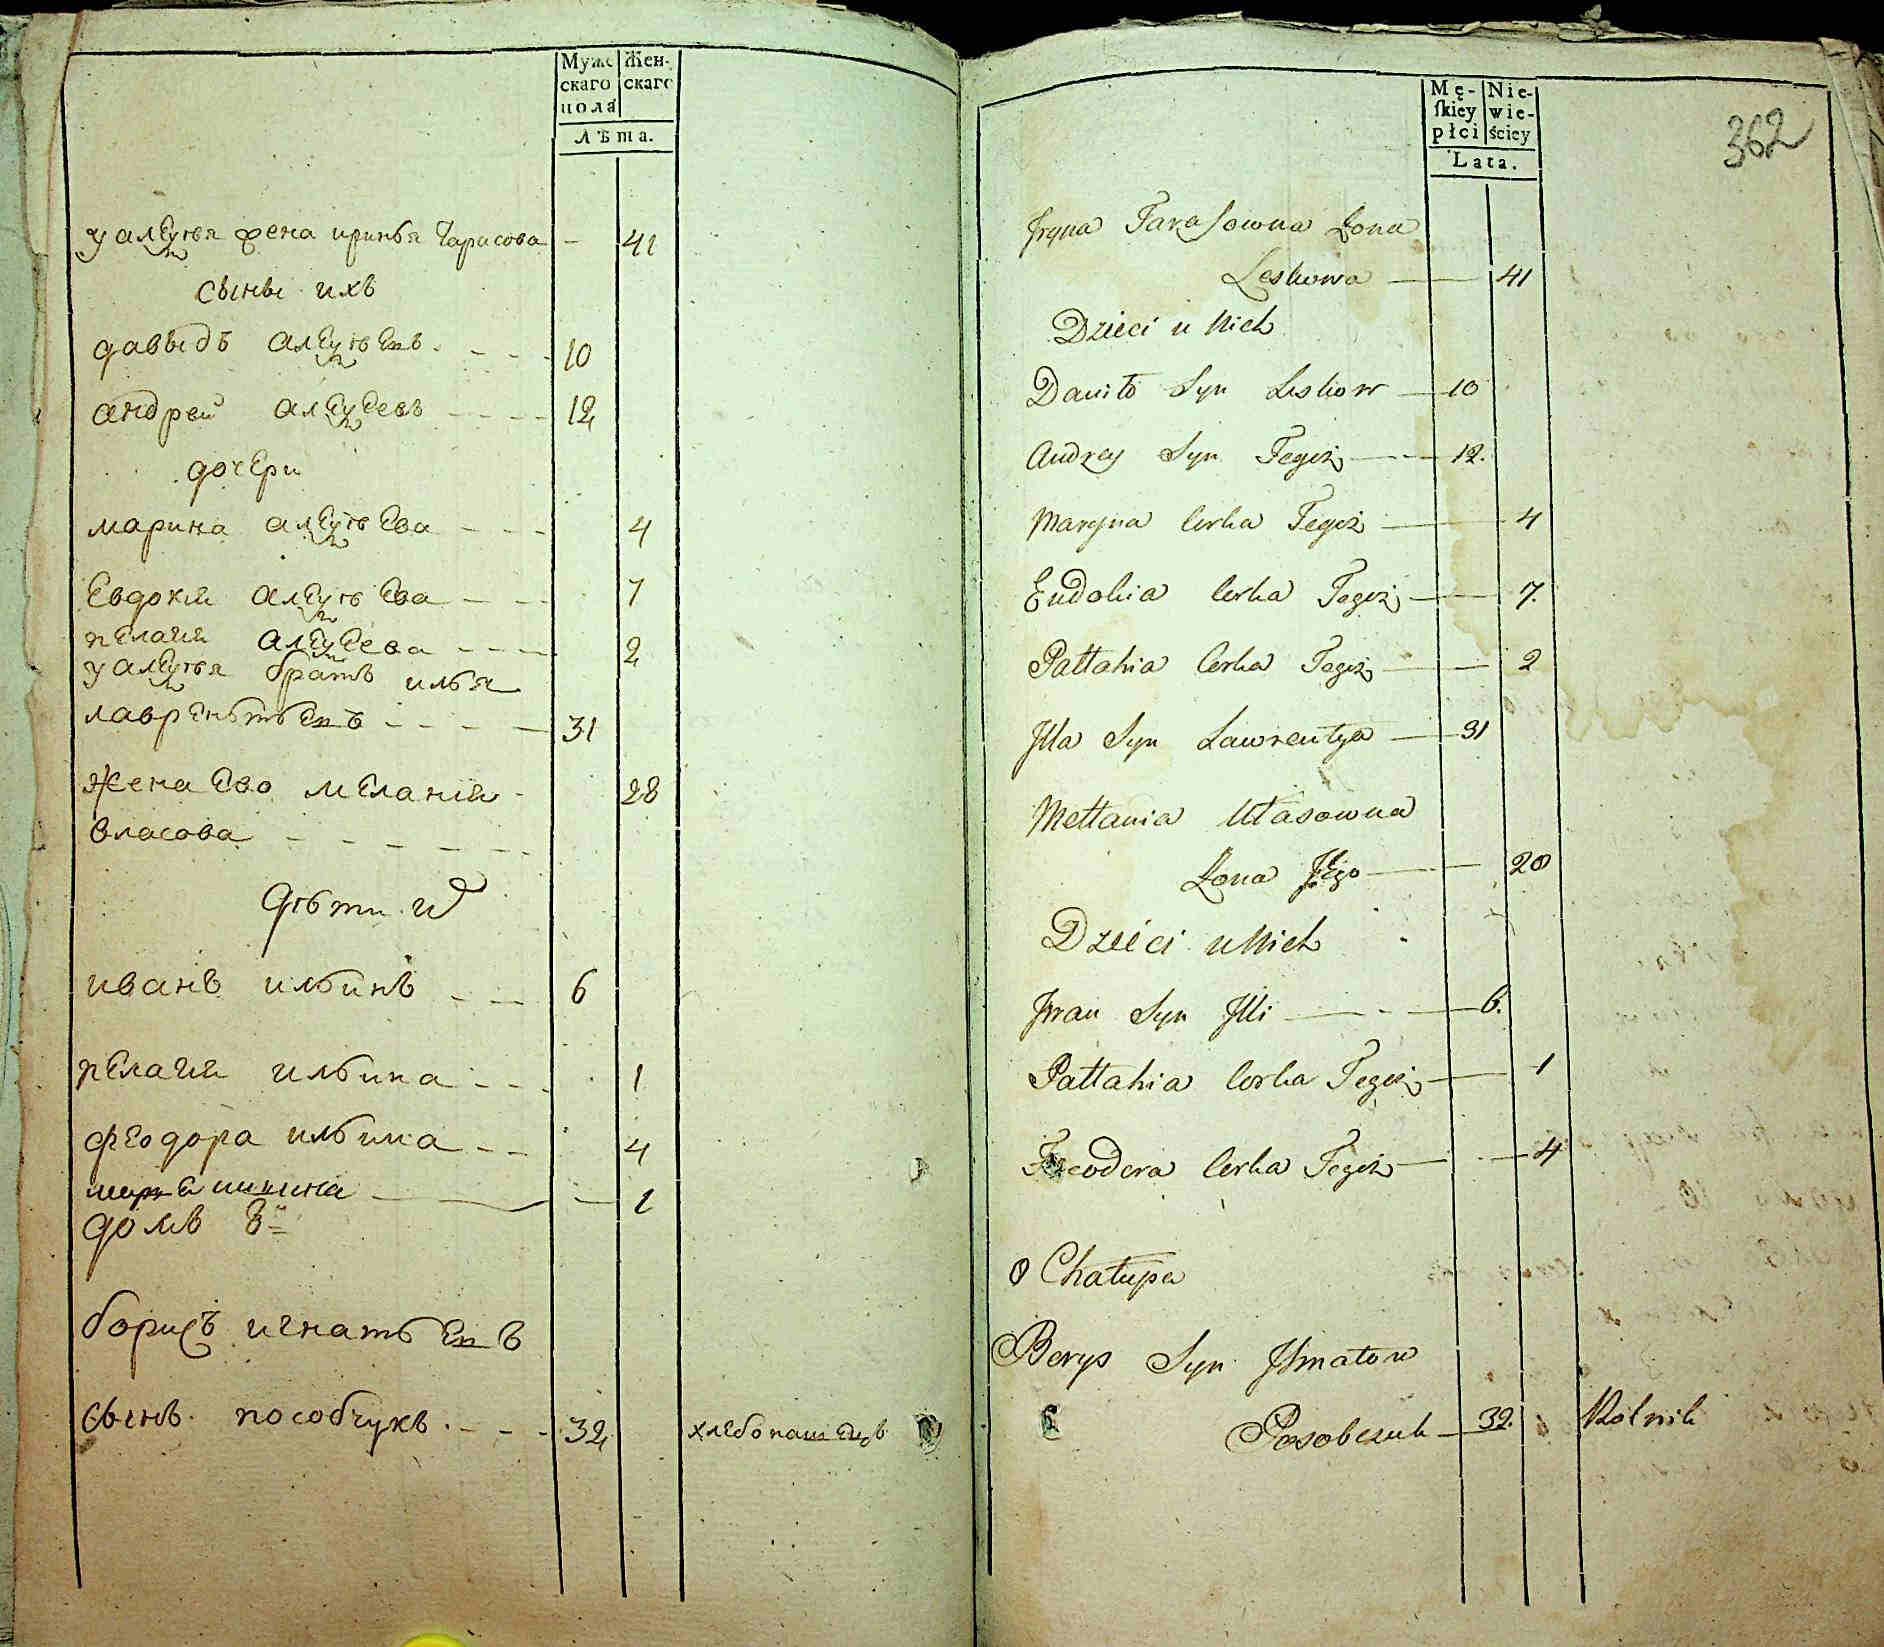 Мужскаго пола
Женскаго
Лѣта.
у алеуѣя жена иринья Тарасова - 41
сыны ихъ
давыдъ алеуѣевъ - - - 10
андрей алеуеевъ - - - 12
дочери
марина алеуѣева - - - 4
Евдокіи алеуѣева - - - 7
пелагия алеуеева - - - 2
у алеуѣя братъ илья
лавреньтьевъ - - - 31
жена ево мелания - 28
власова - - - - - -
дѣти и
иванъ ильинъ - - - 6
пелагия ильина - - - 1
феодора ильина - - 4
ильина - - 1
домъ 8й
борисъ игнатьевъ
сынъ пособчукъ - - - 32 хлебопашецъ
362
Mę-skiey płci
Nie-wie-ściey
Lata.
Jryna Tarasowna Żona
Leskowa — 41
Dzieci u Nich
Daniło Syn Leskow — 10
Andrey Syn Tegoż — 12.
Maryna Corka Tegoż — 4
Eudokia Corka Tegoż — 7.
Pałłahia Corka Tegoż — 2
Jlla Syn Lawrentya — 31
Mełłania Ułasowna
Żona Jego — 28
Dzieci u Nich
Jwan Syn Jlli — 6.
Pałłahia Corka Tegoż — 1
Teodora Corka Tegoż — 4
8 Chałupa
Borys Syn Jhnatow
Posobczuk — 32. Rolnik